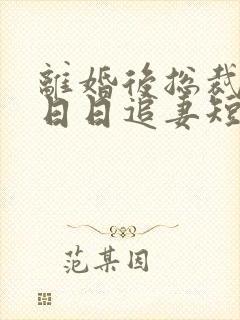 離婚後総裁
日日追妻短
范某因